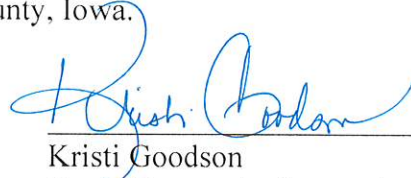 unty, Iowa.
Kristi Goodson
Kristi Goodson